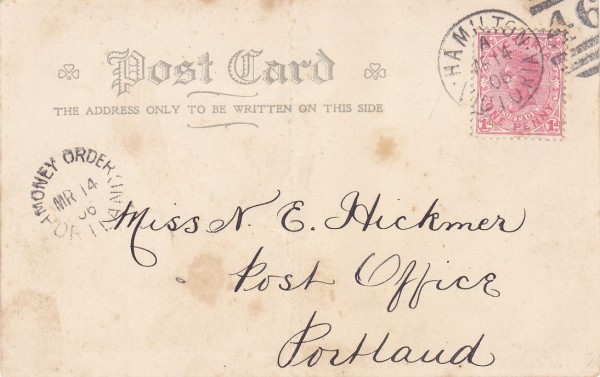 Post Card
THE ADDRESS ONLY TO BE WRITTEN ON THIS SIDE
HAMILTON
A
MR 14
06
VICTORIA
46
ONE PENNY
1D 1D
MONEY ORDER
MR 14
06
PORTLAND
Miss N. E. Hickmer
Post Office
Portland